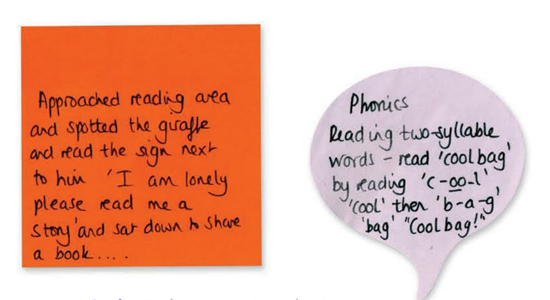 Approached reading area
and spotted the giraffe
and read the sign next
to him 'I am lonely
please read me a
story' and sat down to share
a book....
Phonics
Reading two-syllable
words - read 'cool bag'
by reading 'c-oo-l'
'cool' then 'b-a-g'
'bag' "Cool bag!"